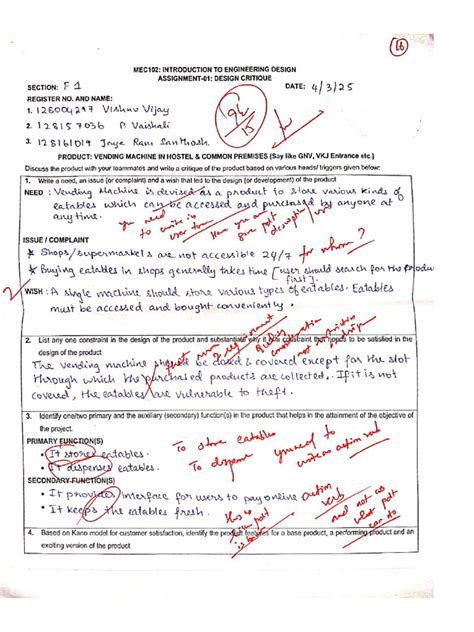 16
MEC102: INTRODUCTION TO ENGINEERING DESIGN
ASSIGNMENT-01: DESIGN CRITIQUE
SECTION: F1
DATE: 4/3/25
REGISTER NO. AND NAME:
1. 128004297 Vishnu Vijay
2. 128157036 P. Vaishali
3. 128161019 Santhosh
15
PRODUCT: VENDING MACHINE IN HOSTEL & COMMON PREMISES (Say like GNV, VKJ Entrance etc.)
Discuss the product with your teammates and write a critique of the product based on various heads/ triggers given below:
1. Write a need, an issue (or complaint) and a wish that led to the design (or development) of the product
NEED : Vending Machine is devised as a product to store various kinds of
eatables which can be accessed and purchased by anyone at
any time.
you need
to write in
user
Have you
give
ISSUE / COMPLAINT
* Shops/supermarkets are not accessible 24/7 for whom?
* Buying eatables in shops generally takes time [user should search for the produ
first].
2
WISH : A single machine should store various types of eatables. Eatables
must be accessed and bought conveniently.
2. List any one constraint in the design of the product and substantiate why it is a constraint that needs to be satisfied in the
design of the product
The vending machine should be closed & covered except for the slot
through which the purchased products are collected. If it is not
covered, the eatables are vulnerable to theft.
3. Identify one/two primary and the auxiliary (secondary) function(s) in the product that helps in the attainment of the objective of
the project.
PRIMARY FUNCTION(S)
• It stores eatables.
• It dispenses eatables.
To store eatables
To dispense
you need to
write an action verb
SECONDARY FUNCTION(S)
• It provides interface for users to pay online
• It keeps the eatables fresh.
action
verb
and not as
what
can do
this is
4. Based on Kano model for customer satisfaction, identify the product features for a base product, a performing product and an
exciting version of the product